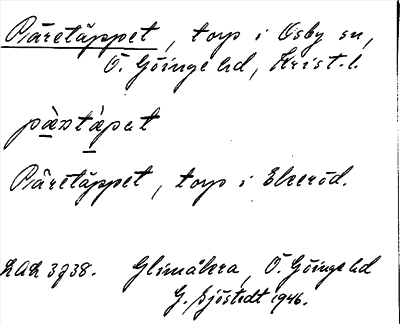 Päretäppet, torp i Osby sn,
Ö. Göinge hd, Krist. l.
pä̀xtàpət
Päretäppet, torp i Ekeröd.
LAL 3938. Glimåkra, Ö. Göinge hd
G. Sjöstedt 1946.